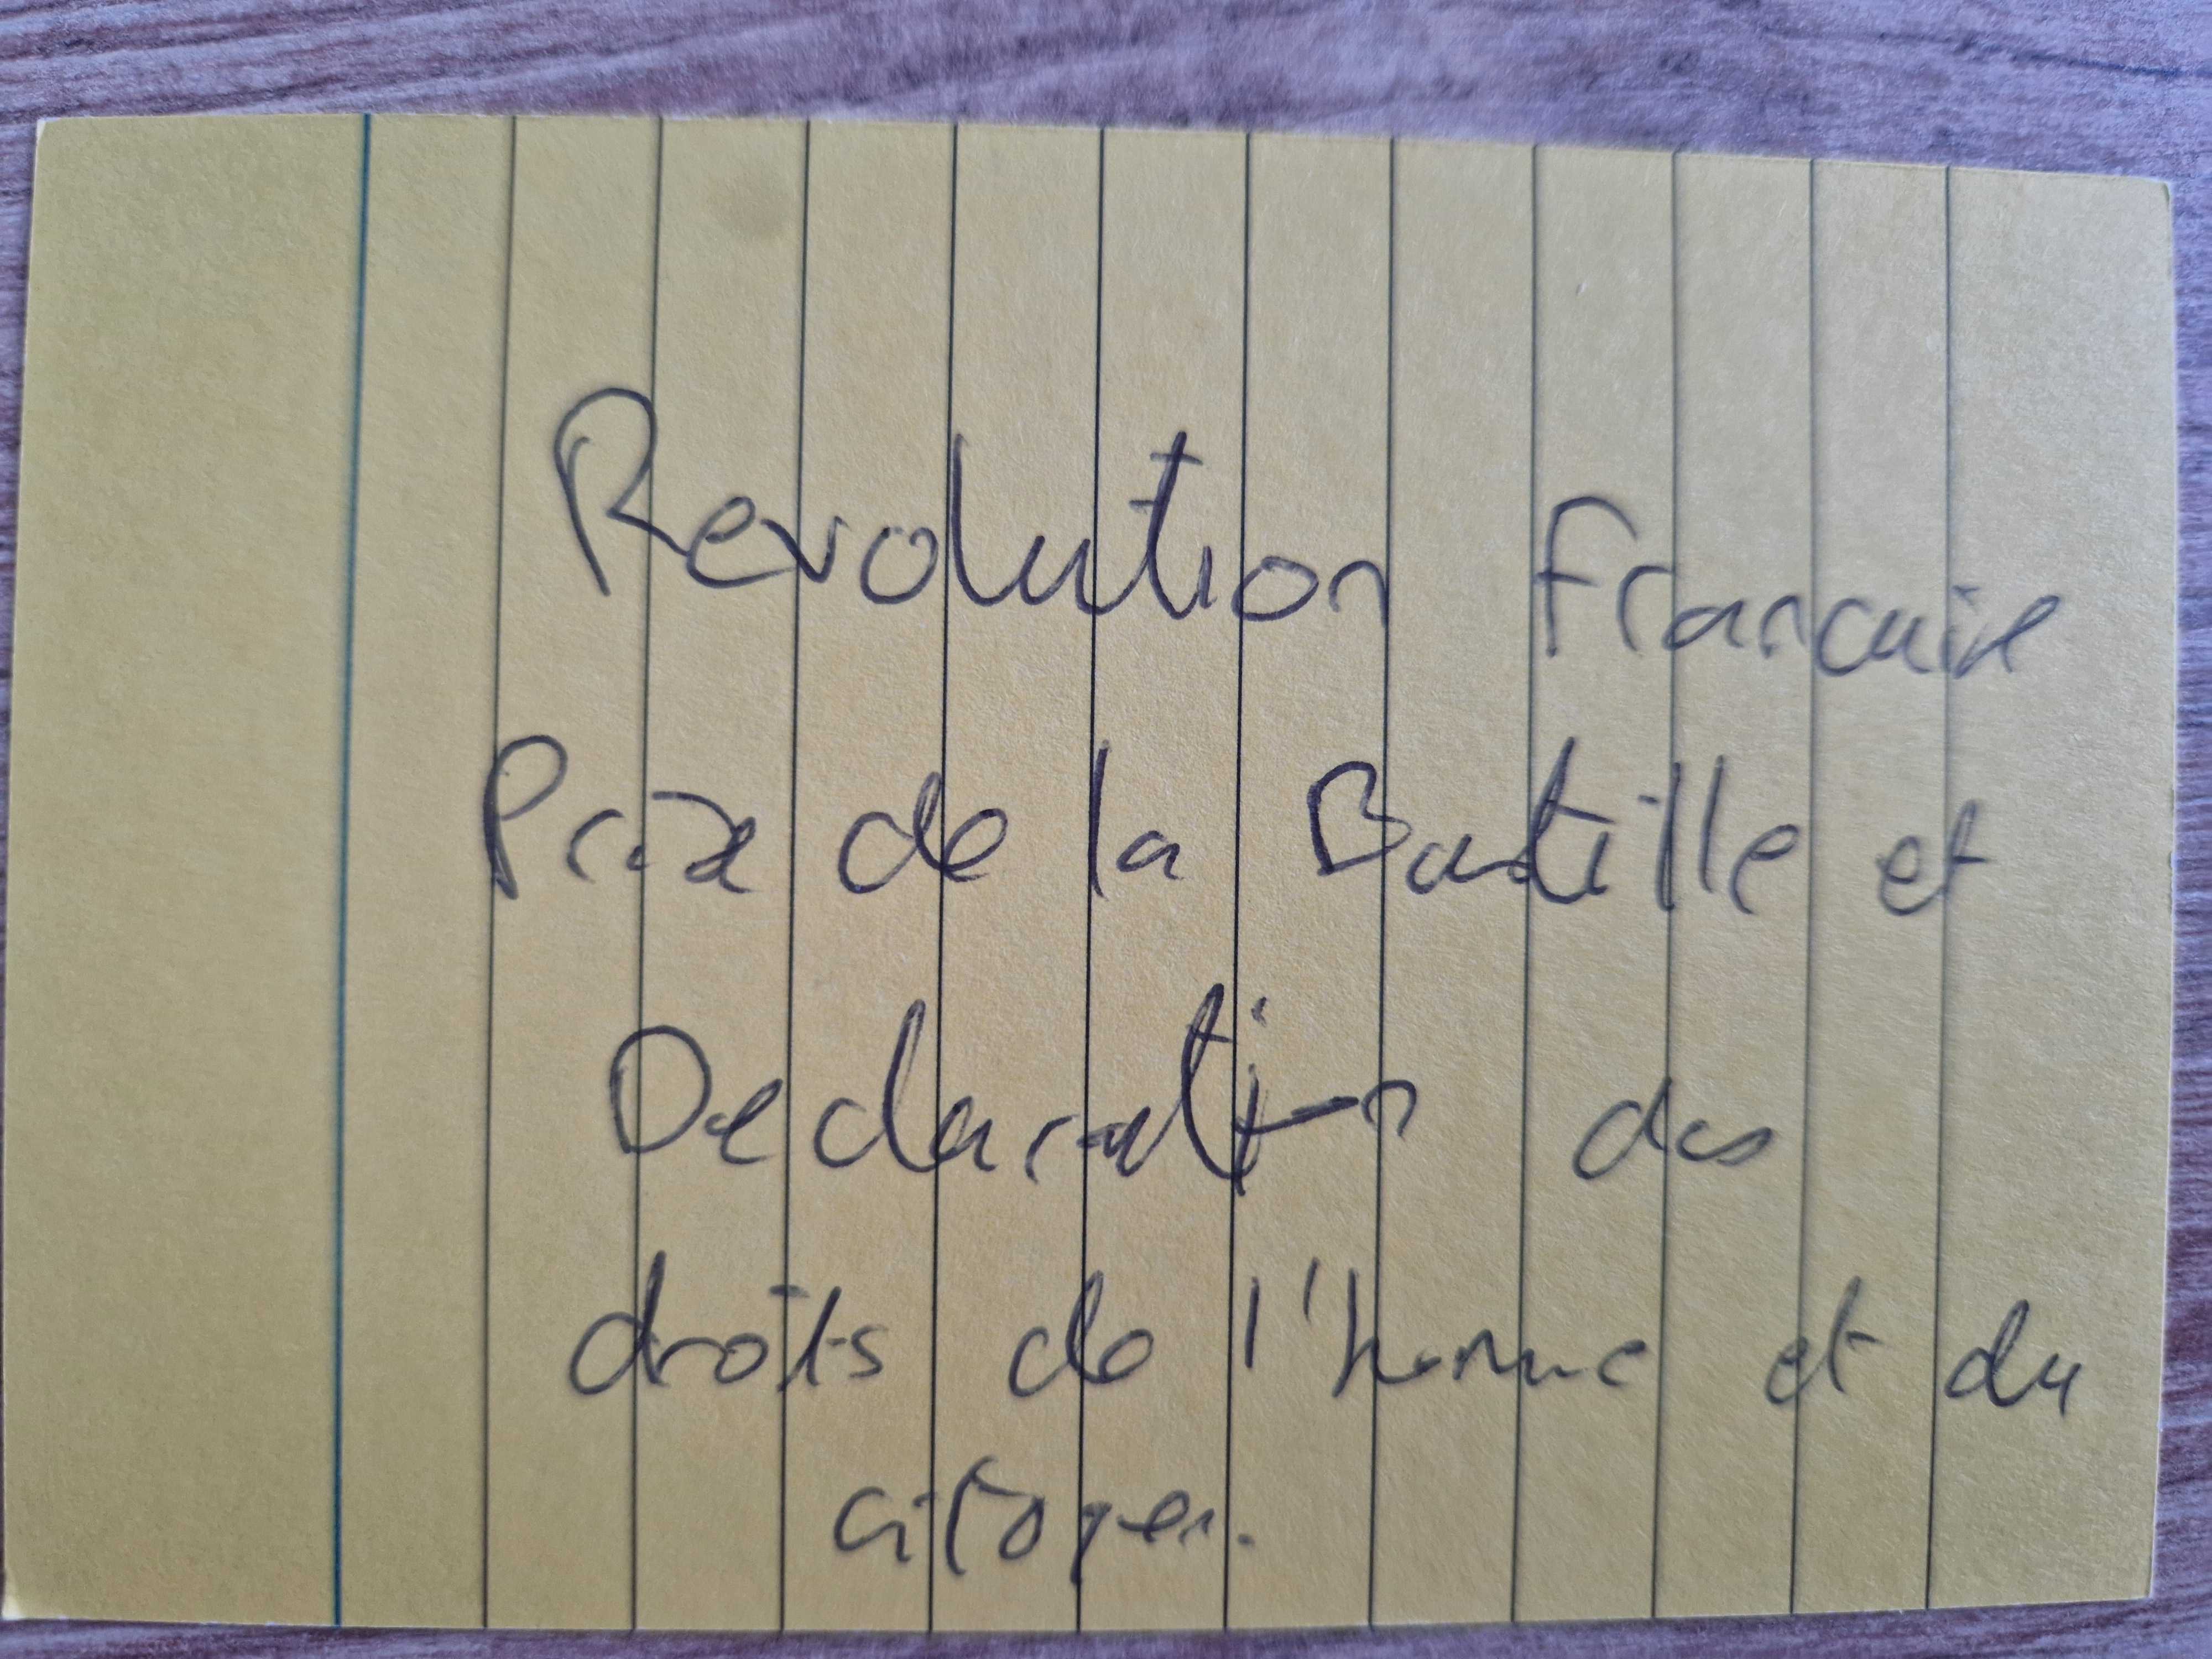 Revolution francaise
Prise de la Bastille et
Declaration des
droits de l'homme et du
citoyen.